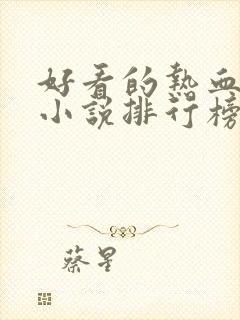 好看的热血
小说排行榜
蔡星